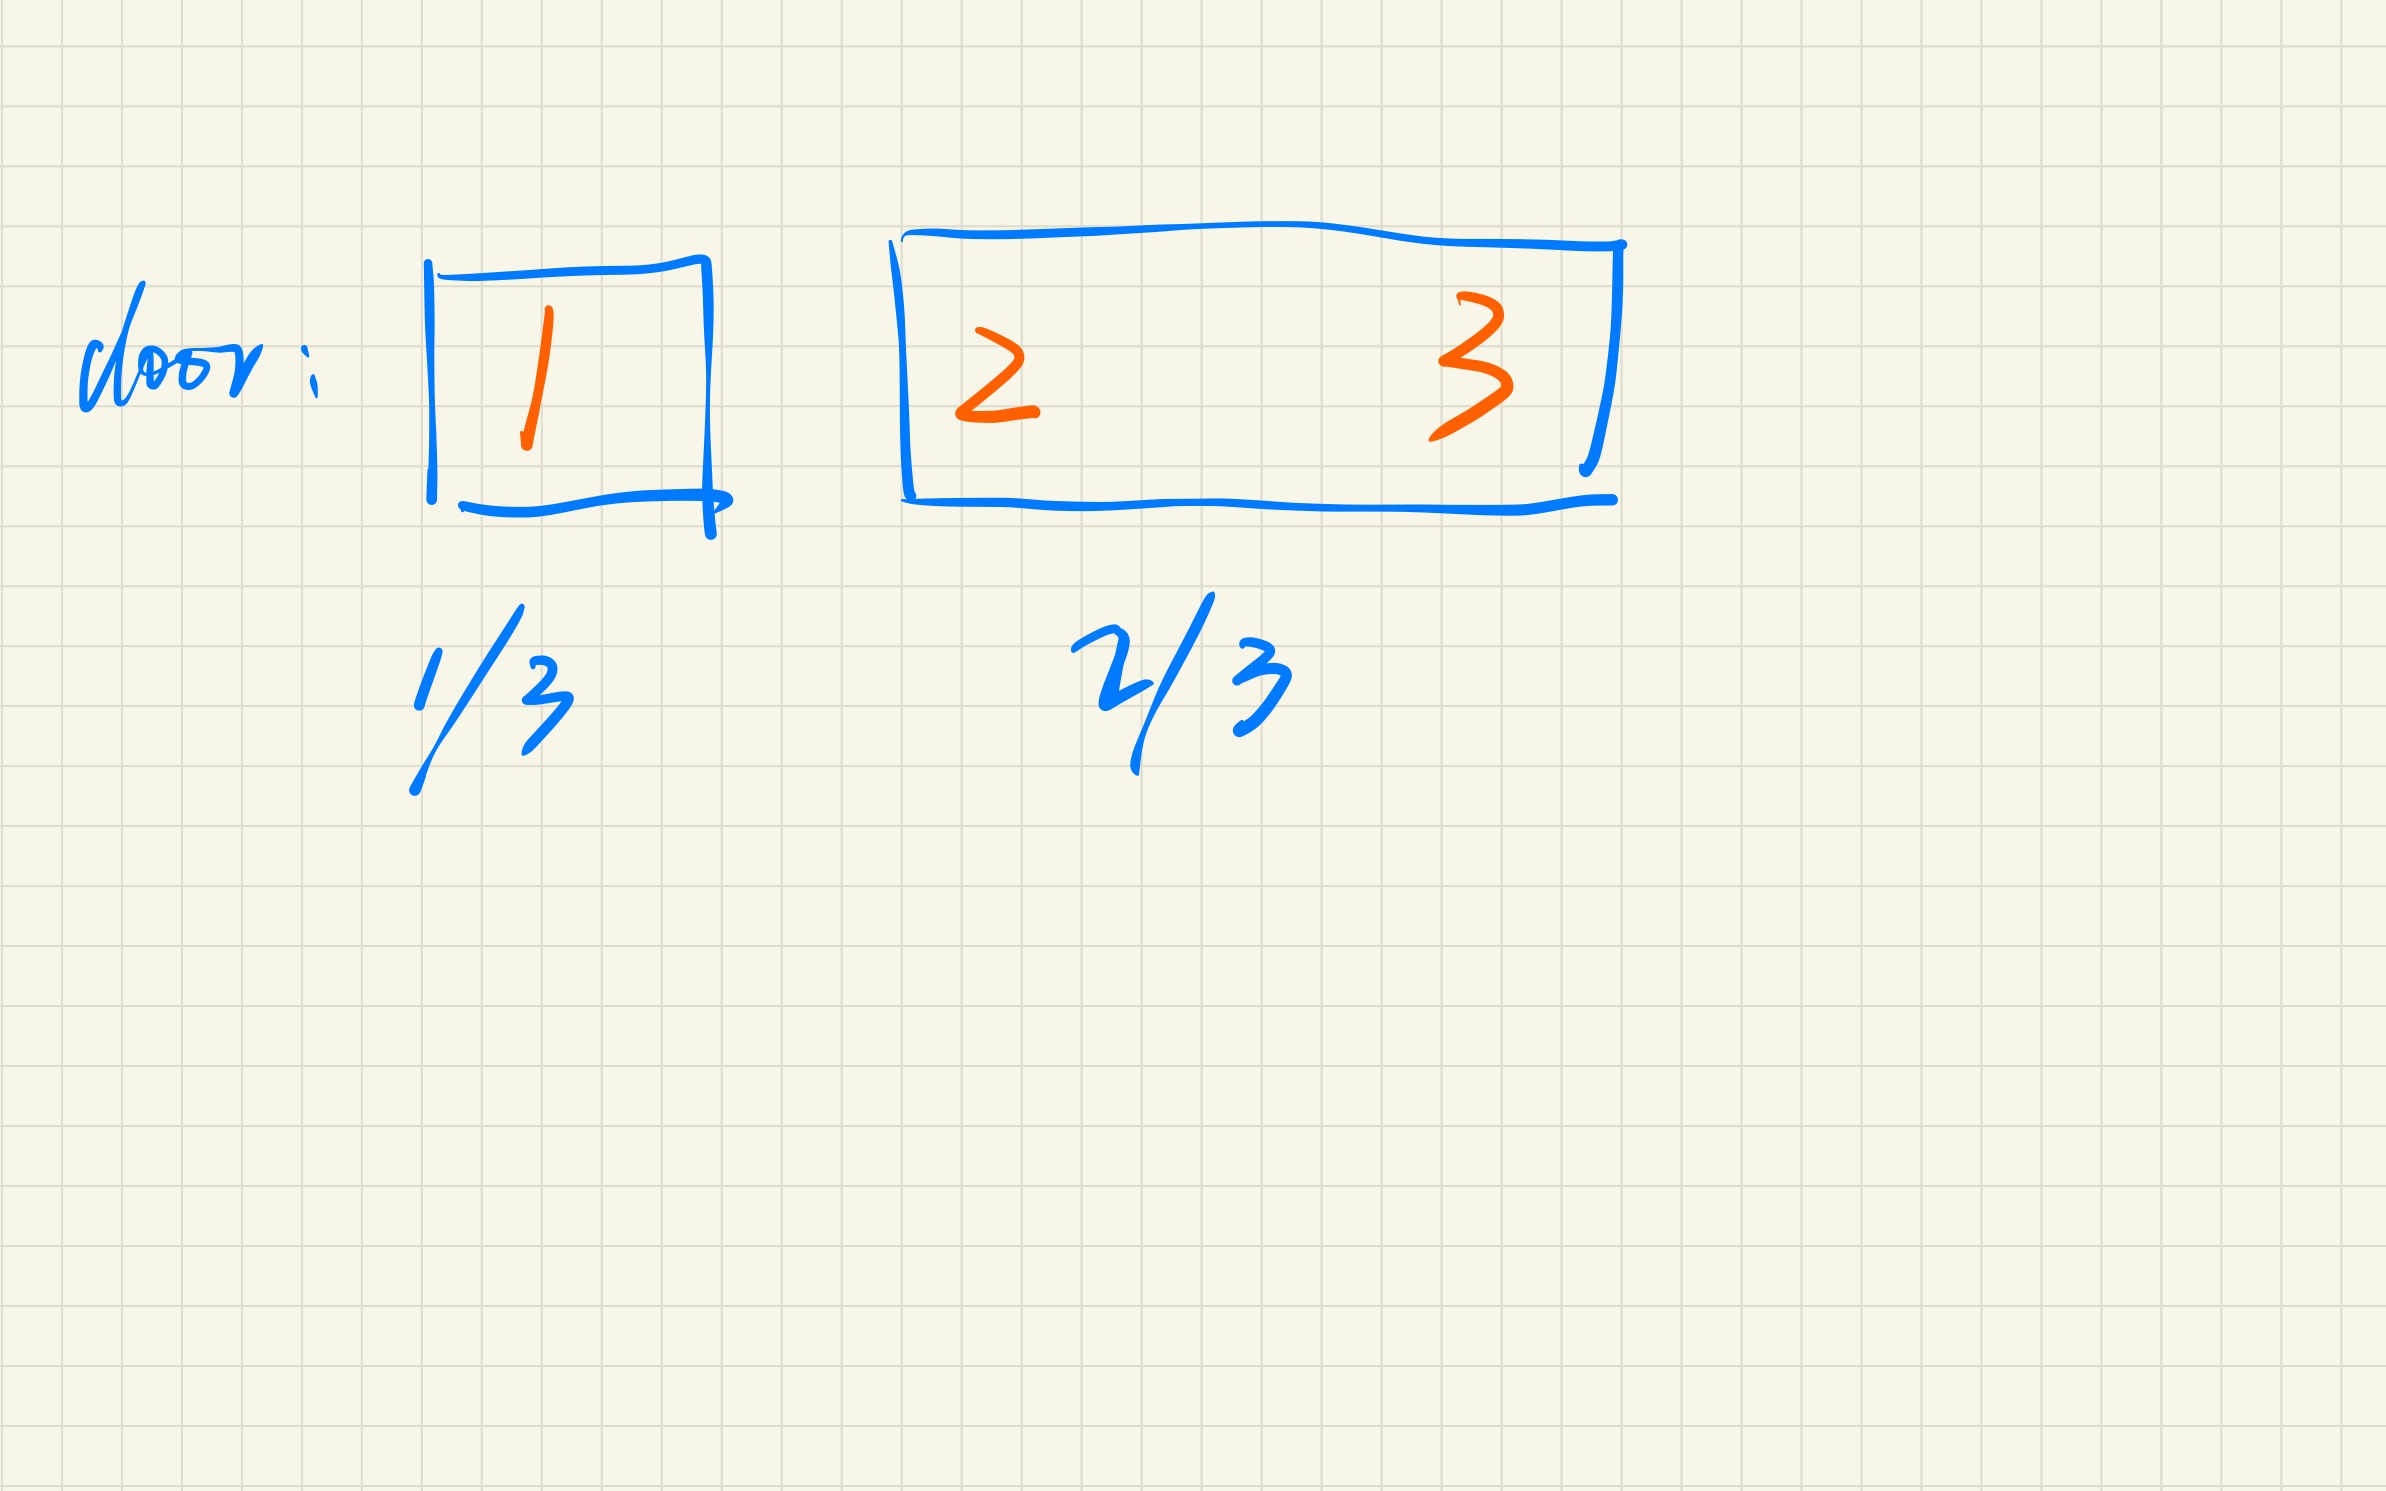 door : 1 2 3
1/3 2/3